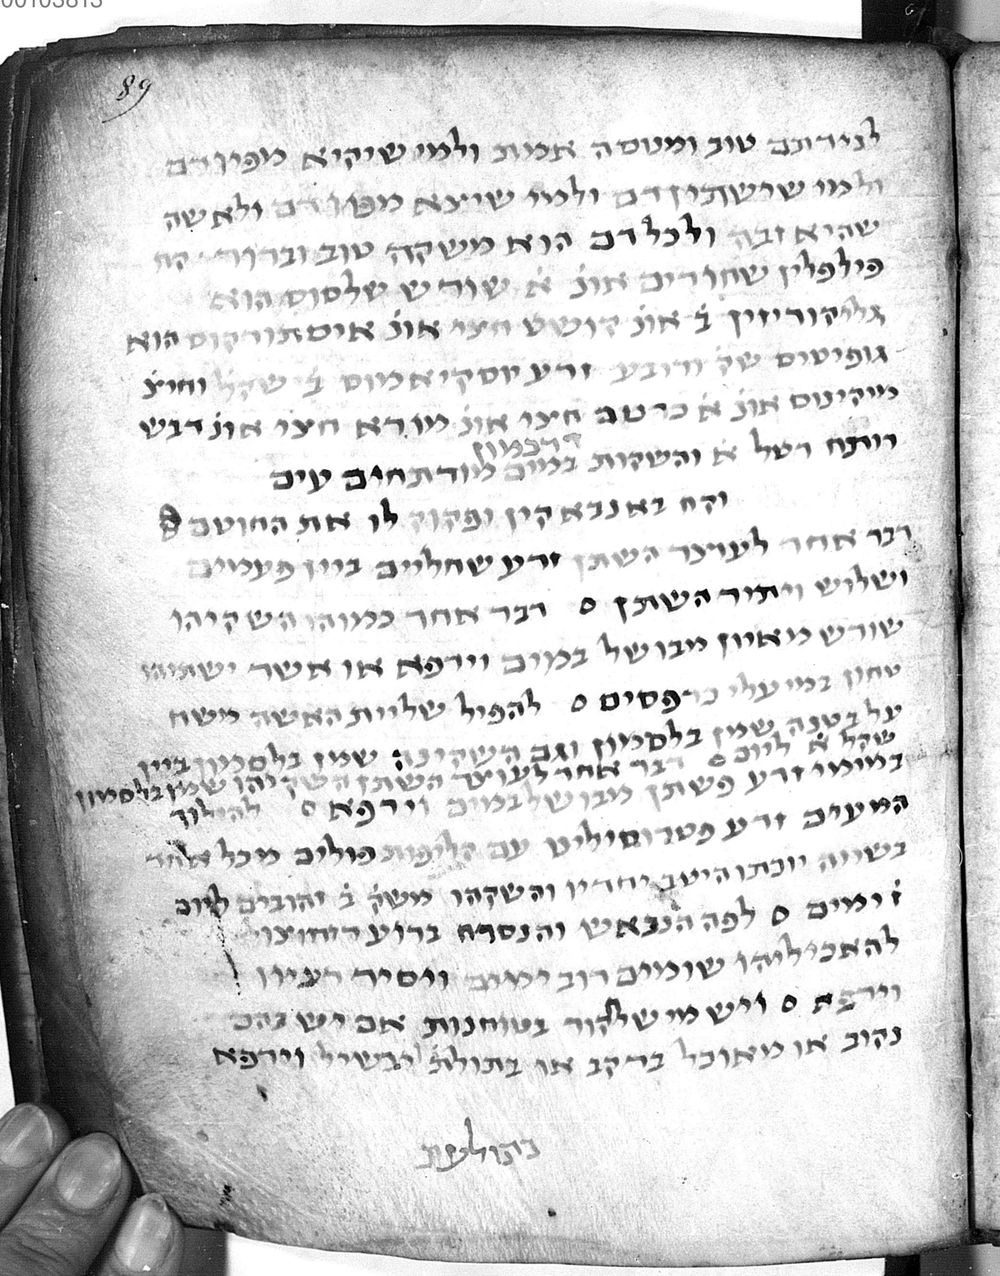 00103813
89
לגירתם טוב ומנוסה אמת ולמי שיקיא מפיו דם
ולמי שישתין דם ולמי שיצא מפיו דם ולאשה
שהיא זבה ולכל דם הוא משקה טוב וברור קח
פילפלין שחורים אונ׳ א׳ שורש שלסוס הוא
גליקוריזין ב׳ אונ׳ קושט חצי אונ׳ הוא
שק׳ ורובע זרע ב׳ שקל וחצי
אונ׳ א׳ כרטם חצי אונ׳ חצי אונ׳ דבש
רותח רטל א׳ והשקות במים חים עים
דרכמון
וקח ופקוק לו את החוטם
דבר אחר לעוצר השתן זרע שחליים ביין פעמים
ושלוש ויתיר השתן ס דבר אחר כמוהו השקיהו
שורש מאיון מבושל במים וירפא או אשר ישתיהו
טחון במי עלי כרפסים ס להפיל שליית האשה משח
על בטנה שמן בלסמון וגם השקינה שמן בלסמון ביין
שקל א׳ ליום ס דבר אחר לעוצר השתן השקיהו שמן בלסמון
במימי זרע פשתן מבושל במים וירפא ס להילוך
המעים זרע עם קליפות פולים מכל אחד
בשויה יוכתו היטב יחדיו והשקהו משק׳ ב׳ זהובים ליום
ז׳ ימים ס לפה הנבאש והנסרח ברוע
להאכילוהו שומים רוב ימים ויסיר
וירפא ס ויש מי בטוחנות אם יש בהם
נקוב או מאוכל ברקב או בתולעת וירפא